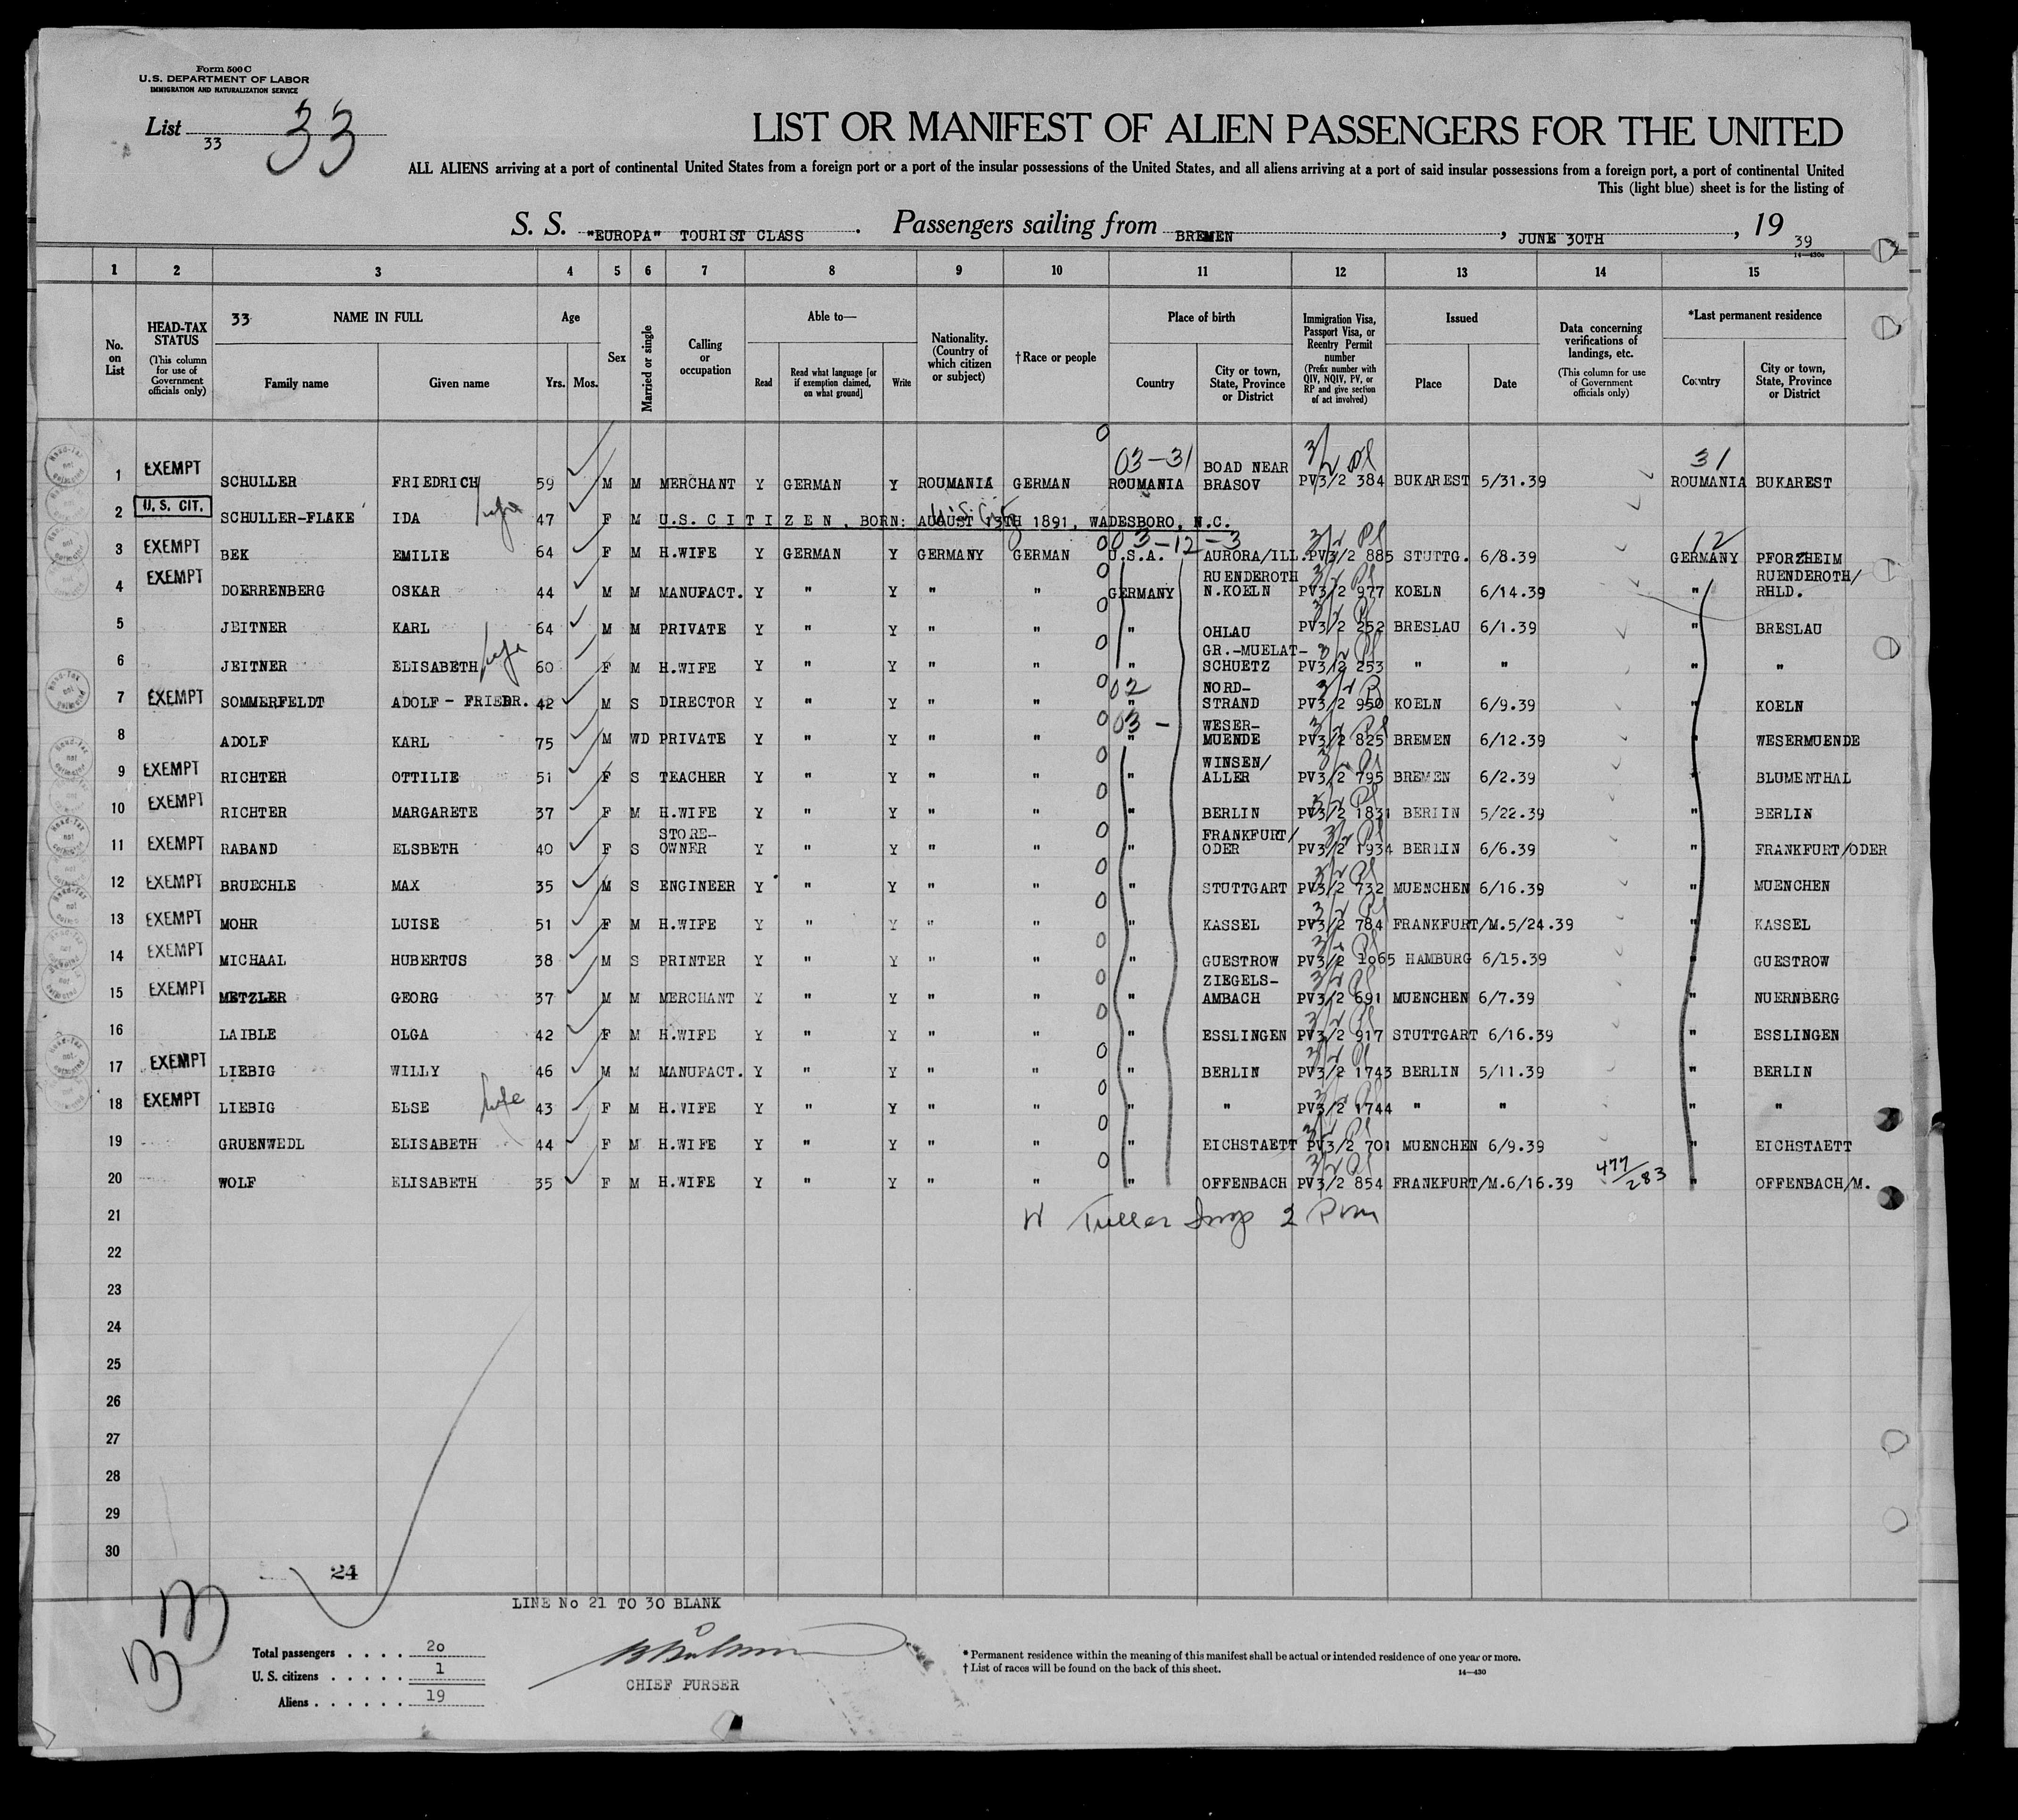 Form 500 C
U.S. DEPARTMENT OF LABOR
IMMIGRATION AND NATURALIZATION SERVICE
List 33 33
LIST OR MANIFEST OF ALIEN PASSENGERS FOR THE UNITED
ALL ALIENS arriving at a port of continental United States from a foreign port or a port of the insular possessions of the United States, and all aliens arriving at a port of said insular possessions from a foreign port, a port of continental United
This (light blue) sheet is for the listing of
S. S. "EUROPA" TOURIST CLASS . Passengers sailing from BREMEN , JUNE 30TH , 19 39
14-430a
1 2 3 4 5 6 7 8 9 10 11 12 13 14 15
No. on List
HEAD-TAX STATUS (This column for use of Government officials only)
33 NAME IN FULL
Family name Given name
Age Yrs. Mos.
Sex
Married or single
Calling or occupation
Able to— Read Read what language [or if exemption claimed, on what ground] Write
Nationality. (Country of which citizen or subject)
†Race or people
Place of birth Country City or town, State, Province or District
Immigration Visa, Passport Visa, or Reentry Permit number (Prefix number with QIV, NQIV, PV, or RP and give section of act involved)
Issued Place Date
Data concerning verifications of landings, etc. (This column for use of Government officials only)
*Last permanent residence Country City or town, State, Province or District
03-31 3/2 Pl 31
1 EXEMPT SCHULLER FRIEDRICH 59 M M MERCHANT Y GERMAN Y ROUMANIA GERMAN ROUMANIA BOAD NEAR BRASOV PV3/2 384 BUKAREST 5/31.39 ROUMANIA BUKAREST
2 U.S. CIT. SCHULLER-FLAKE IDA wife 47 F M U.S. CITIZEN, BORN: AUGUST 13TH 1891, WADESBORO, N.C. U.S. Cit
03-12-3 3/2 Pl 12
3 EXEMPT BEK EMILIE 64 F M H.WIFE Y GERMAN Y GERMANY GERMAN U.S.A. AURORA/ILL. PV3/2 885 STUTTG. 6/8.39 GERMANY PFORZHEIM
4 EXEMPT DOERRENBERG OSKAR 44 M M MANUFACT. Y " Y " " GERMANY RUENDEROTH N.KOELN PV3/2 977 KOELN 6/14.39 " RUENDEROTH/ RHLD.
5 JEITNER KARL 64 M M PRIVATE Y " Y " " " OHLAU PV3/2 252 BRESLAU 6/1.39 " BRESLAU
6 JEITNER ELISABETH wife 60 F M H.WIFE Y " Y " " " GR.-MUELAT-SCHUETZ PV3/2 253 " " " "
7 EXEMPT SOMMERFELDT ADOLF - FRIEDR. 42 M S DIRECTOR Y " Y " " 02 " NORD-STRAND PV3/2 950 KOELN 6/9.39 " KOELN
8 ADOLF KARL 75 M WD PRIVATE Y " Y " " 03 - " WESER-MUENDE PV3/2 825 BREMEN 6/12.39 " WESERMUENDE
9 EXEMPT RICHTER OTTILIE 51 F S TEACHER Y " Y " " " WINSEN/ ALLER PV3/2 795 BREMEN 6/2.39 " BLUMENTHAL
10 EXEMPT RICHTER MARGARETE 37 F M H.WIFE Y " Y " " " BERLIN PV3/2 1831 BERLIN 5/22.39 " BERLIN
11 EXEMPT RABAND ELSBETH 40 F S STORE-OWNER Y " Y " " " FRANKFURT/ ODER PV3/2 1934 BERLIN 6/6.39 " FRANKFURT/ODER
12 EXEMPT BRUECHLE MAX 35 M S ENGINEER Y " Y " " " STUTTGART PV3/2 732 MUENCHEN 6/16.39 " MUENCHEN
13 EXEMPT MOHR LUISE 51 F M H.WIFE Y " Y " " " KASSEL PV3/2 784 FRANKFURT/M. 5/24.39 " KASSEL
14 EXEMPT MICHAAL HUBERTUS 38 M S PRINTER Y " Y " " " GUESTROW PV3/2 1065 HAMBURG 6/15.39 " GUESTROW
15 EXEMPT METZLER GEORG 37 M M MERCHANT Y " Y " " " ZIEGELS-AMBACH PV3/2 691 MUENCHEN 6/7.39 " NUERNBERG
16 LAIBLE OLGA 42 F M H.WIFE Y " Y " " " ESSLINGEN PV3/2 917 STUTTGART 6/16.39 " ESSLINGEN
17 EXEMPT LIEBIG WILLY 46 M M MANUFACT. Y " Y " " " BERLIN PV3/2 1743 BERLIN 5/11.39 " BERLIN
18 EXEMPT LIEBIG ELSE wife 43 F M H.WIFE Y " Y " " " " PV3/2 1744 " " " "
19 GRUENWEDL ELISABETH 44 F M H.WIFE Y " Y " " " EICHSTAETT PV3/2 701 MUENCHEN 6/9.39 " EICHSTAETT
20 WOLF ELISABETH 35 F M H.WIFE Y " Y " " " OFFENBACH PV3/2 854 FRANKFURT/M. 6/16.39 477/283 " OFFENBACH/M.
21
22
23
24
25
26
27
28
29
30
24
LINE No 21 TO 30 BLANK
Total passengers . . . . 20
U. S. citizens . . . . . 1
Aliens . . . . . . 19
CHIEF PURSER
* Permanent residence within the meaning of this manifest shall be actual or intended residence of one year or more.
† List of races will be found on the back of this sheet.
14-430